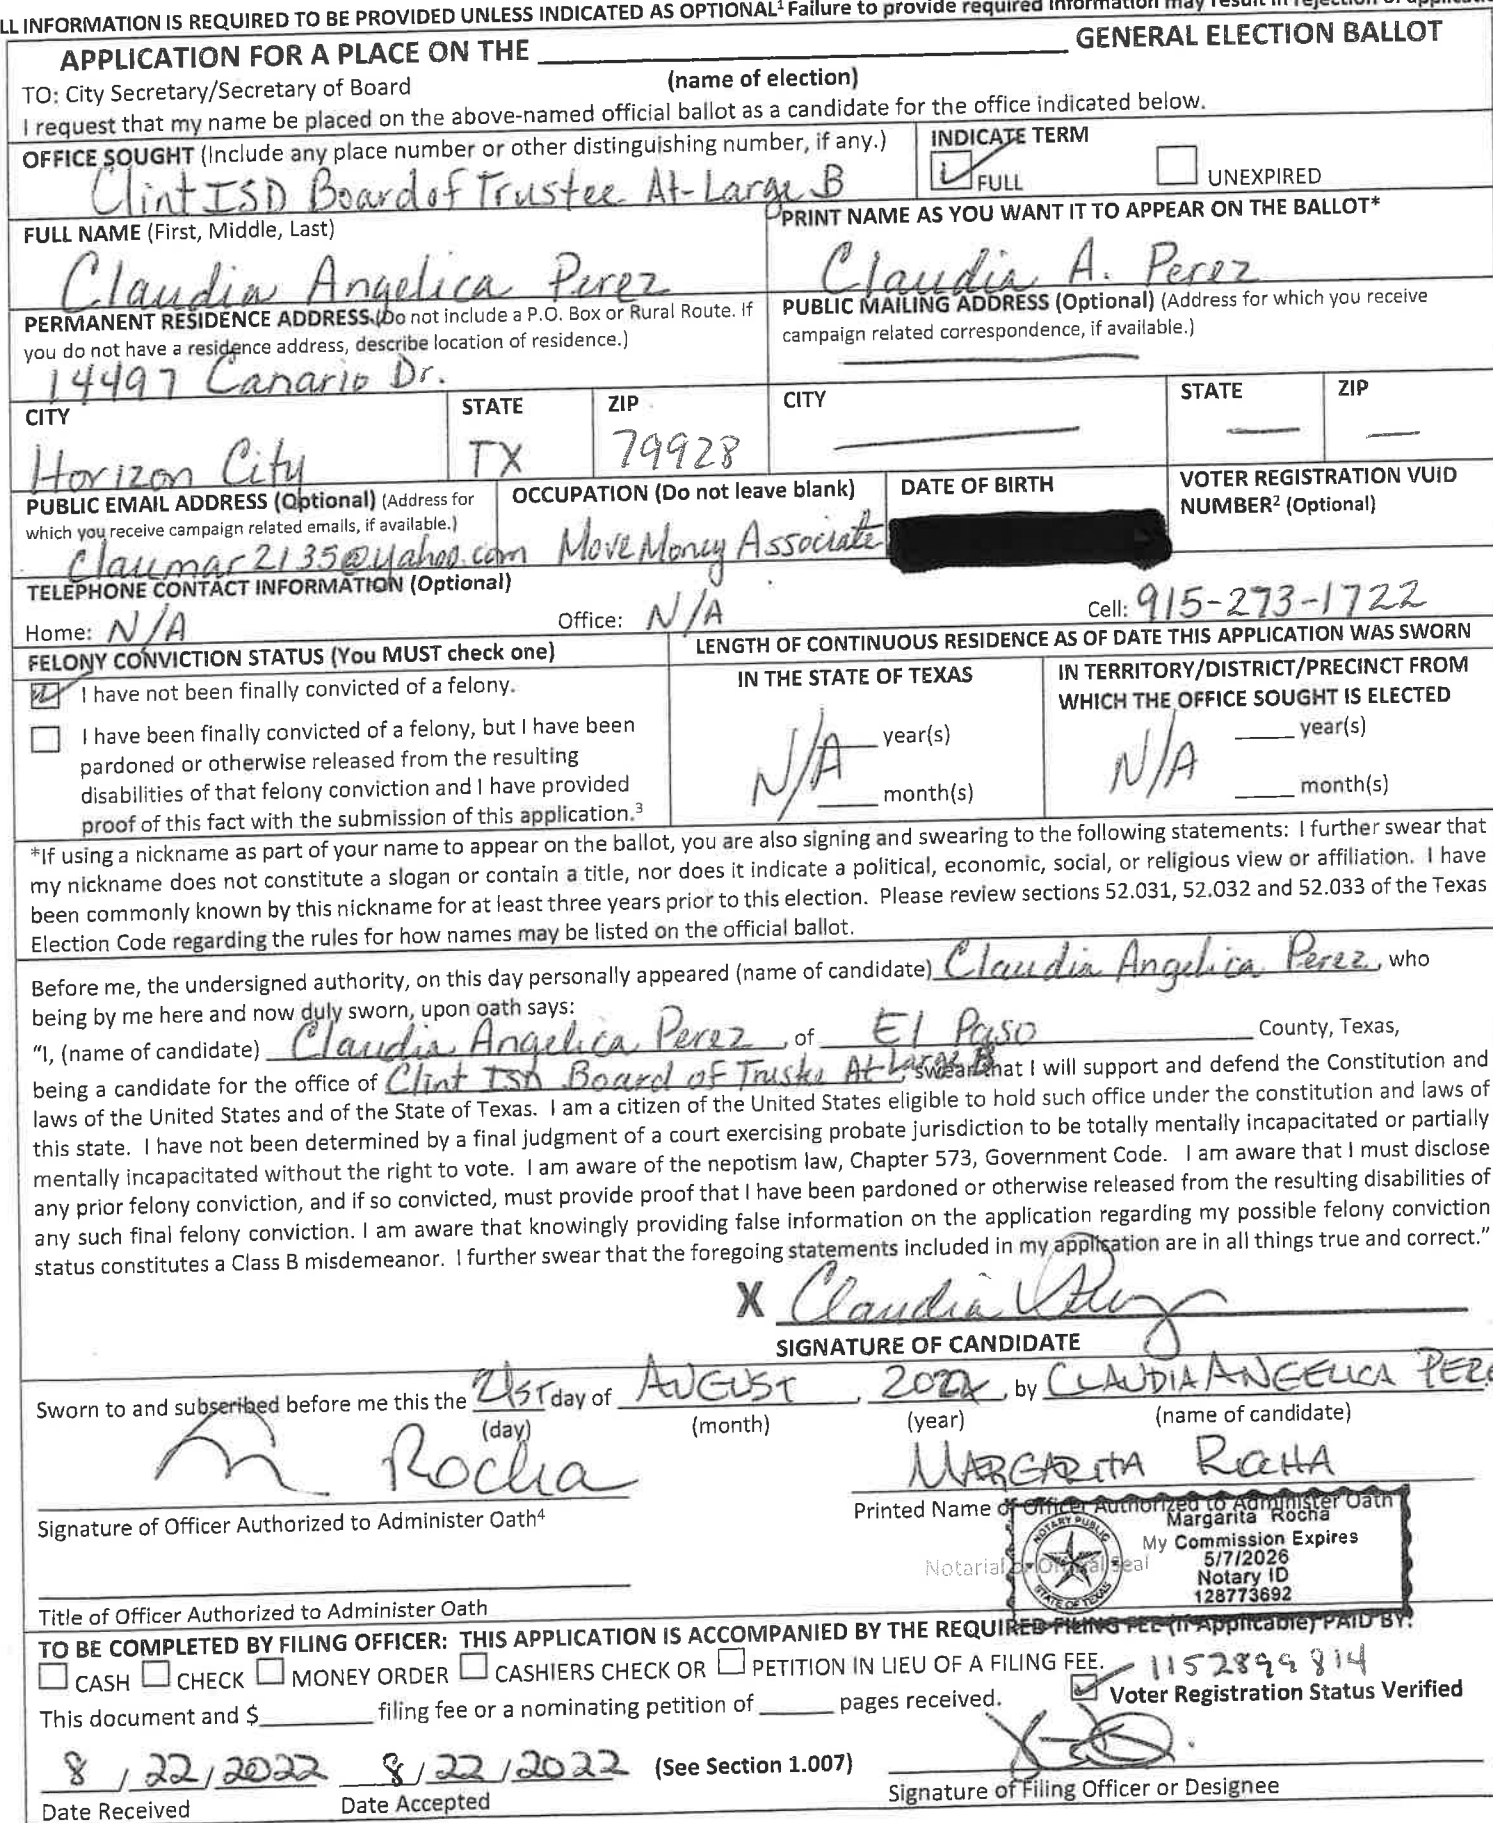 LL INFORMATION IS REQUIRED TO BE PROVIDED UNLESS INDICATED AS OPTIONAL¹ Failure to provide required information may result in rejection of
APPLICATION FOR A PLACE ON THE ____ GENERAL ELECTION BALLOT
(name of election)
TO: City Secretary/Secretary of Board
I request that my name be placed on the above-named official ballot as a candidate for the office indicated below.
OFFICE SOUGHT (Include any place number or other distinguishing number, if any.)
Clint ISD Board of Trustee At-Large B
INDICATE TERM
FULL
UNEXPIRED
FULL NAME (First, Middle, Last)
Claudia Angelica Perez
PRINT NAME AS YOU WANT IT TO APPEAR ON THE BALLOT*
Claudia A. Perez
PERMANENT RESIDENCE ADDRESS (Do not include a P.O. Box or Rural Route. If
you do not have a residence address, describe location of residence.)
14497 Canario Dr.
PUBLIC MAILING ADDRESS (Optional) (Address for which you receive
campaign related correspondence, if available.)
CITY
Horizon City
STATE
TX
ZIP
79928
CITY
STATE
ZIP
PUBLIC EMAIL ADDRESS (Optional) (Address for
which you receive campaign related emails, if available.)
claumar2135@yahoo.com
OCCUPATION (Do not leave blank)
Move Money Associate
DATE OF BIRTH
VOTER REGISTRATION VUID
NUMBER² (Optional)
TELEPHONE CONTACT INFORMATION (Optional)
Home: N/A Office: N/A Cell: 915-273-1722
FELONY CONVICTION STATUS (You MUST check one)
I have not been finally convicted of a felony.
I have been finally convicted of a felony, but I have been
pardoned or otherwise released from the resulting
disabilities of that felony conviction and I have provided
proof of this fact with the submission of this application.³
LENGTH OF CONTINUOUS RESIDENCE AS OF DATE THIS APPLICATION WAS SWORN
IN THE STATE OF TEXAS
N/A ____ year(s)
____ month(s)
IN TERRITORY/DISTRICT/PRECINCT FROM
WHICH THE OFFICE SOUGHT IS ELECTED
N/A ____ year(s)
____ month(s)
*If using a nickname as part of your name to appear on the ballot, you are also signing and swearing to the following statements: I further swear that
my nickname does not constitute a slogan or contain a title, nor does it indicate a political, economic, social, or religious view or affiliation. I have
been commonly known by this nickname for at least three years prior to this election. Please review sections 52.031, 52.032 and 52.033 of the Texas
Election Code regarding the rules for how names may be listed on the official ballot.
Before me, the undersigned authority, on this day personally appeared (name of candidate) Claudia Angelica Perez, who
being by me here and now duly sworn, upon oath says:
"I, (name of candidate) Claudia Angelica Perez, of El Paso County, Texas,
being a candidate for the office of Clint ISD Board of Truste At-Large B, swear that I will support and defend the Constitution and
laws of the United States and of the State of Texas. I am a citizen of the United States eligible to hold such office under the constitution and laws of
this state. I have not been determined by a final judgment of a court exercising probate jurisdiction to be totally mentally incapacitated or partially
mentally incapacitated without the right to vote. I am aware of the nepotism law, Chapter 573, Government Code. I am aware that I must disclose
any prior felony conviction, and if so convicted, must provide proof that I have been pardoned or otherwise released from the resulting disabilities of
any such final felony conviction. I am aware that knowingly providing false information on the application regarding my possible felony conviction
status constitutes a Class B misdemeanor. I further swear that the foregoing statements included in my application are in all things true and correct."
X Claudia Perez
SIGNATURE OF CANDIDATE
Sworn to and subscribed before me this the 21st day of AUGUST, 2022, by CLAUDIA ANGELICA PERE
(day) (month) (year) (name of candidate)
Rocha
MARGARITA ROCHA
Signature of Officer Authorized to Administer Oath⁴
Printed Name of Officer Authorized to Administer Oath
Notarial or Official Seal
NOTARY PUBLIC
STATE OF TEXAS
Margarita Rocha
My Commission Expires
5/7/2026
Notary ID
128773692
Title of Officer Authorized to Administer Oath
TO BE COMPLETED BY FILING OFFICER: THIS APPLICATION IS ACCOMPANIED BY THE REQUIRED FILING FEE (If Applicable) PAID BY:
CASH CHECK MONEY ORDER CASHIERS CHECK OR PETITION IN LIEU OF A FILING FEE.
1152899814
This document and $____ filing fee or a nominating petition of ____ pages received.
Voter Registration Status Verified
8/22/2022 8/22/2022 (See Section 1.007)
Date Received Date Accepted
Signature of Filing Officer or Designee